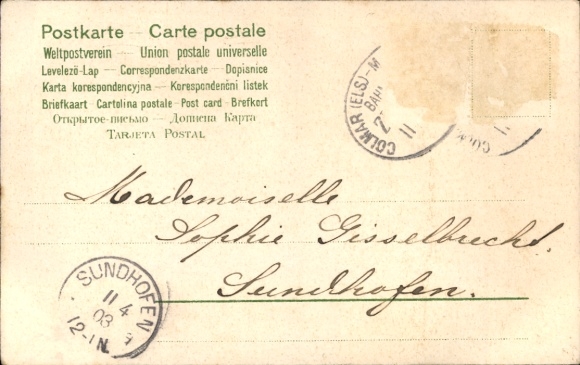 Postkarte — Carte postale
Weltpostverein — Union postale universelle
Levelező-Lap — Correspondenzkarte — Dopisnice
Karta korespondencyjna — Korespondenční listek
Briefkaart Cartolina postale - Post card - Brefkort
Открытое-письмо — Дописна Карта
TARJETA POSTAL
COLMAR (ELS)-M
BAH
11
COLM
Mademoiselle
Sophie Gisselbrecht.
Sundhofen.
SUNDHOFEN
11 4
03
12-1N.